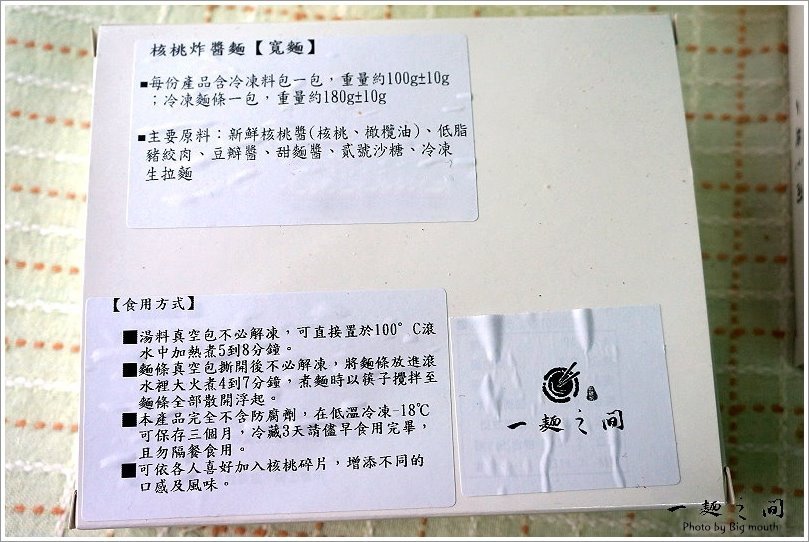 核桃炸醬麵【寬麵】
■每份產品含冷凍料包一包，重量約100g±10g
；冷凍麵條一包，重量約180g±10g
■主要原料：新鮮核桃醬(核桃、橄欖油)、低脂
豬絞肉、豆瓣醬、甜麵醬、貳號沙糖、冷凍
生拉麵
【食用方式】
■湯料真空包不必解凍，可直接置於100°C滾
水中加熱煮5到8分鐘。
■麵條真空包撕開後不必解凍，將麵條放進滾
水裡大火煮4到7分鐘，煮麵時以筷子攪拌至
麵條全部散開浮起。
■本產品完全不含防腐劑，在低溫冷凍-18℃
可保存三個月，冷藏3天請儘早食用完畢，
且勿隔餐食用。
■可依各人喜好加入核桃碎片，增添不同的
口感及風味。
一麵之間
一麵之間
Photo by Big mouth